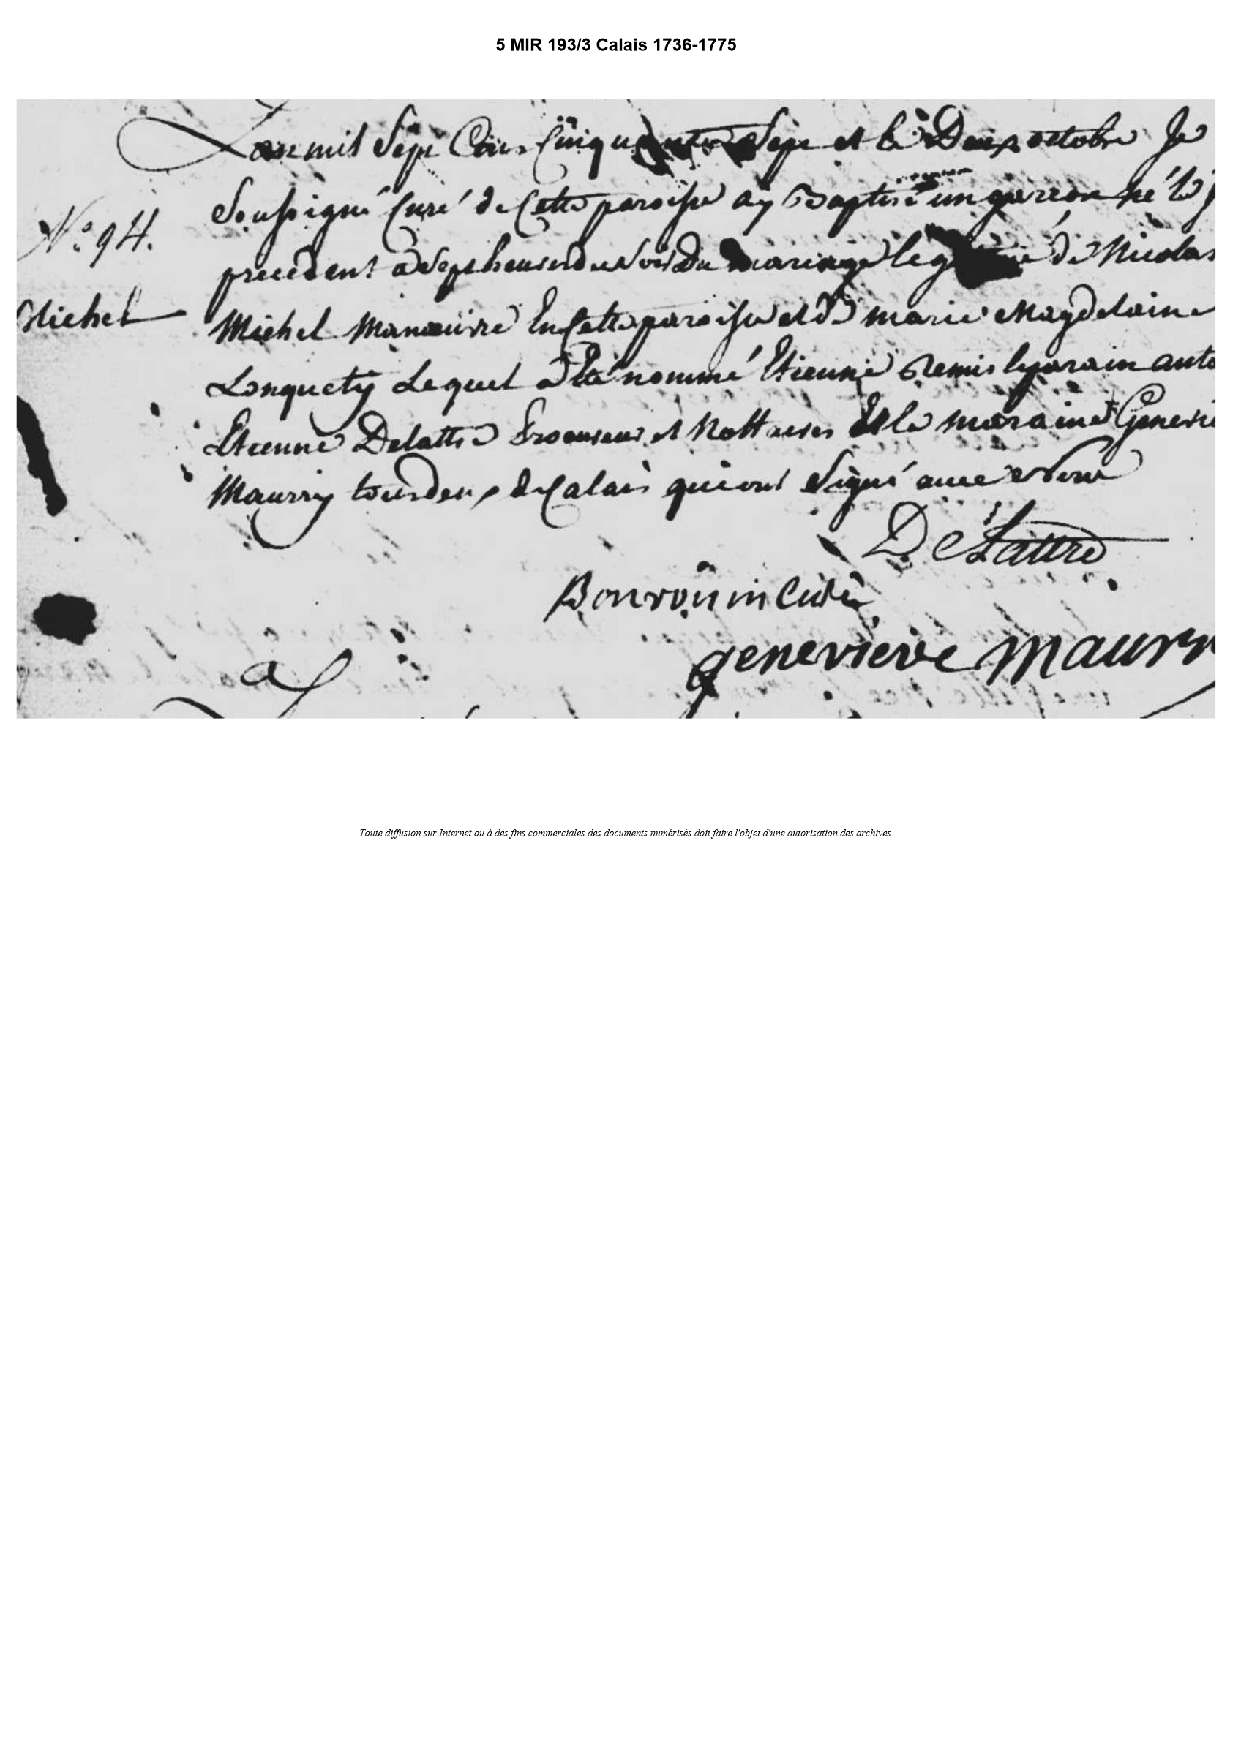 5 MIR 193/3 Calais 1736-1775
L'an mil Sept Cens Cinquante Sept et le Deux octobre Je
Soussigné Curé de Cette paroisse ay Baptisé un garcon né le j
N.º 94.
precedent a Sept heures du Soir du mariage leg de Nicolas
Michel
Michel Manœuvre En Cette paroisse et de marie Magdelaine
Lonquety Lequel a Eté nommé Etienne Remis le parain anto
Etienne Delattre Procureur et Nottaires Et la maraine Genevie
Maurry tous deux de Calais qui ont Signé avec Nous
DeLattre
Bonvoisin Curé
genevieve Maurry
Toute diffusion sur Internet ou à des fins commerciales des documents numérisés doit faire l'objet d'une autorisation des archives